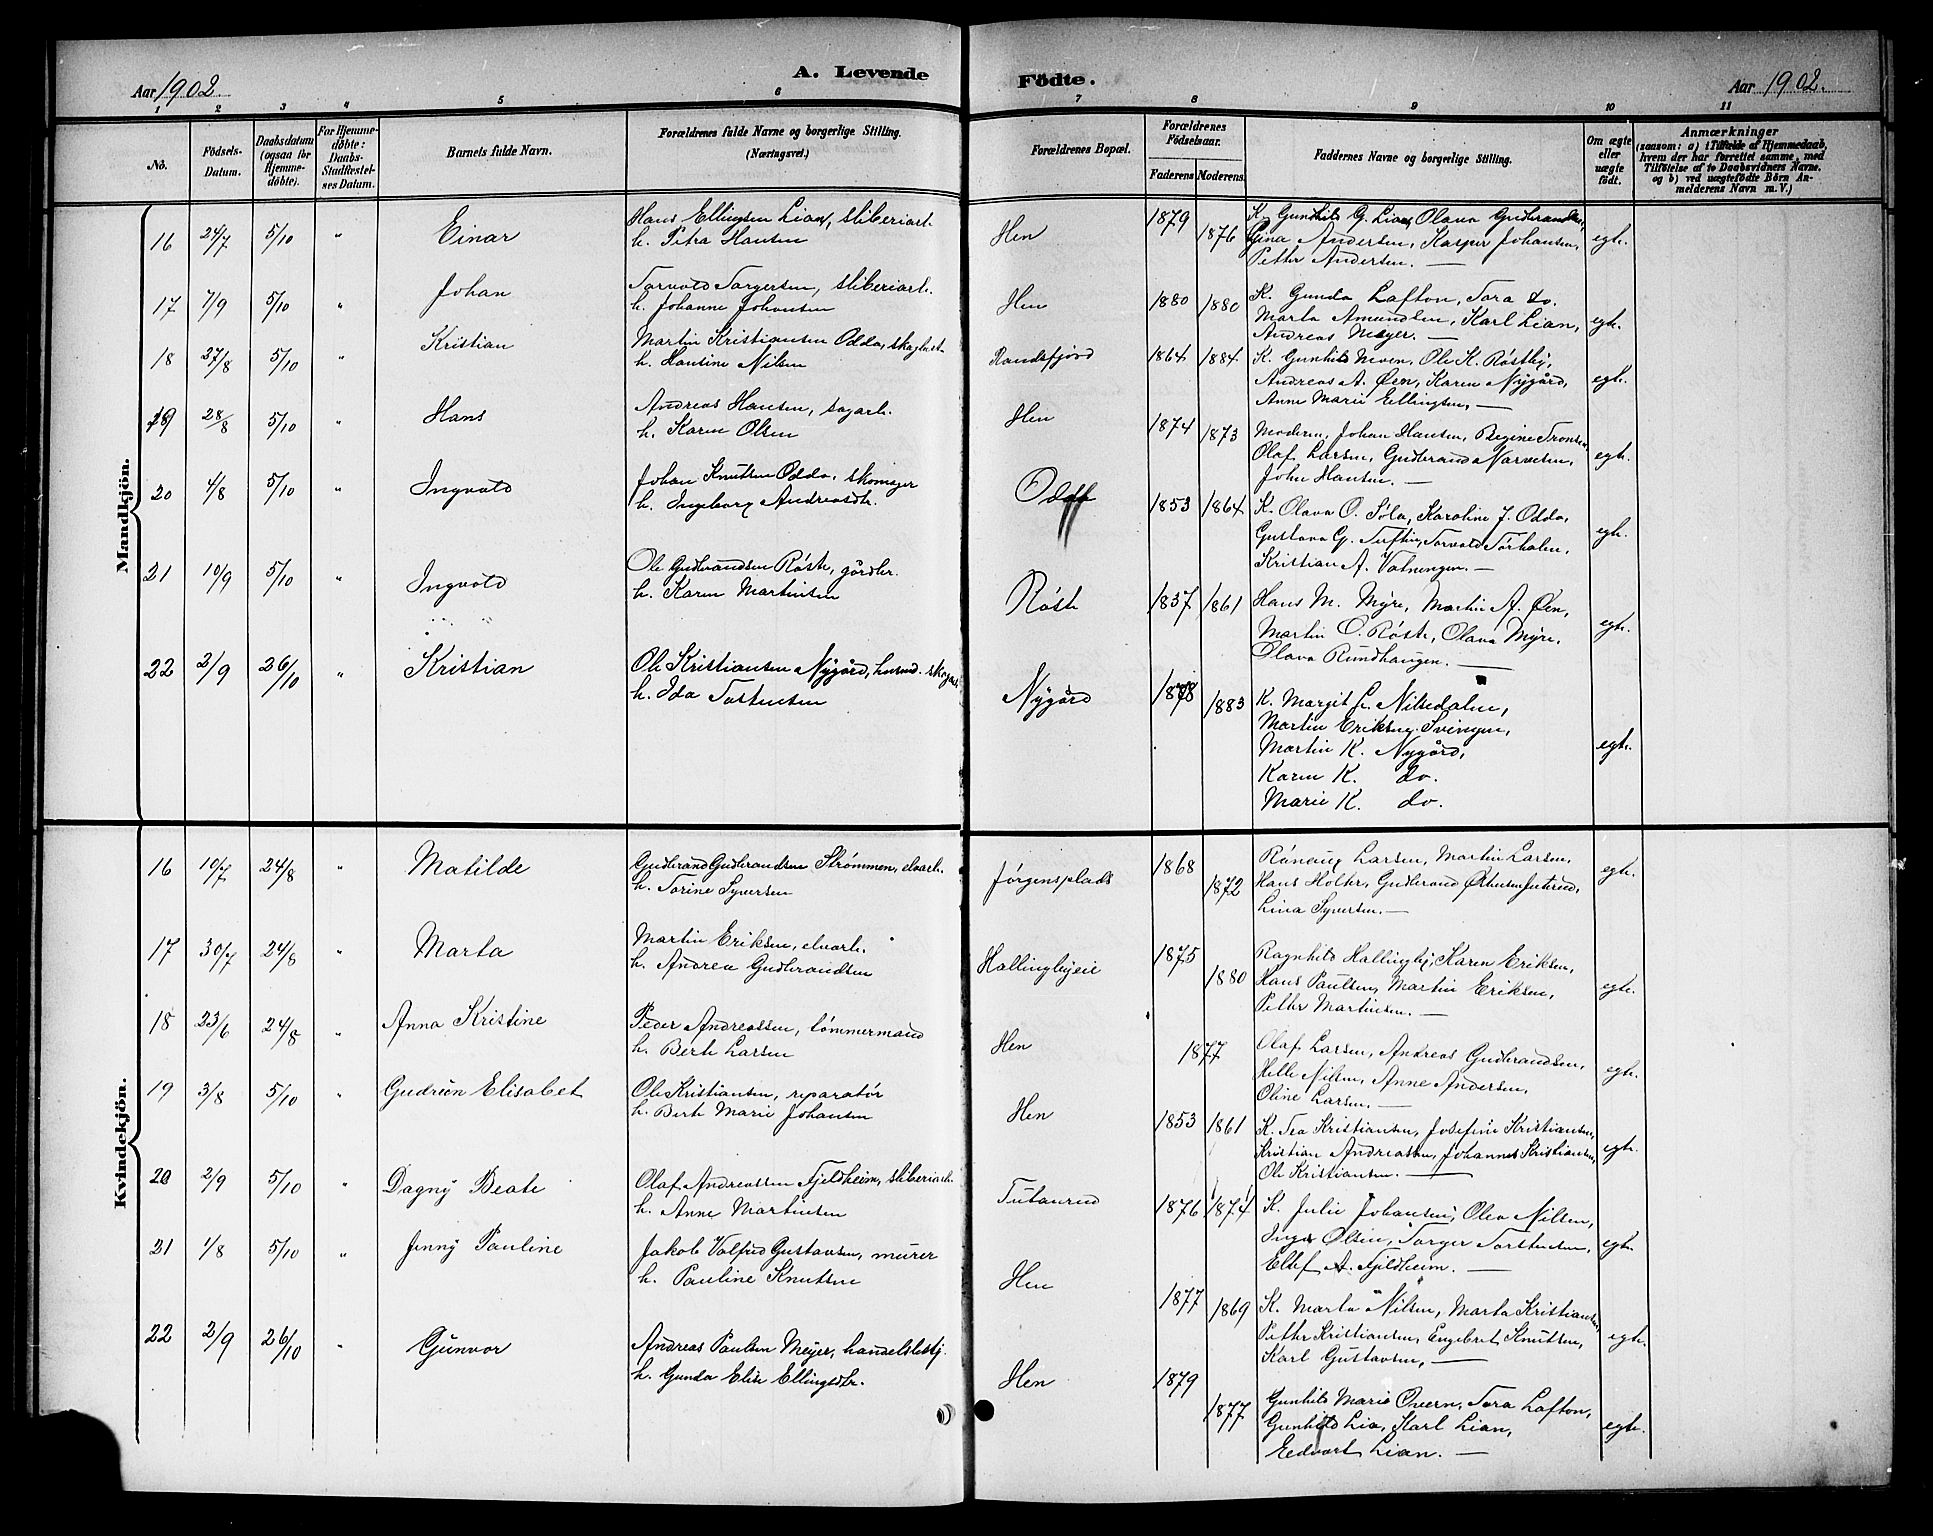 Aar 1902.
A. Levende
Födte.
Aar 1902.
1 2 3 4 5 6 7 8 9 10 11
No.
Födsels-Datum.
Daabsdatum (ogsaa for Hjemmedöbte).
For Hjemmedöbte: Daabs-Stadfæstelses Datum.
Barnets fulde Navn.
Forældrenes fulde Navne og borgerlige Stilling. (Næringsvei.)
Forældrenes Bopæl.
Forældrenes Födselsaar.
Faderens. Moderens.
Faddernes Navne og borgerlige Stilling.
Om ægte eller uægte födt.
Anmærkninger
(saasom: a) i Tilfælde af Hjemmedaab, hvem der har forrettet samme, med Tilföielse af to Daabsvidners Navne, og b) ved uægtefödte Börn Anmelderens Navn m. V.)
Mandkjön.
16 24/7 5/10 " Einar
Hans Ellingsen Lian, sliberiarb.
h. Petra Hansen
Hen 1879 1876
K. Gunhild G. Lian, Olava Gudbrandsen,
Gina Andersen, Kasper Johansen,
Petter Andersen. —
egte.
17 7/9 5/10 " Johan
Torvald Torgersen, sliberiarb.
h. Johanne Johansen
Hen 1880 1880
K. Gunda Lafton, Tora do.
Marta Amundsen, Karl Lian,
Andreas Meyer. —
egte.
18 27/8 5/10 " Kristian
Martin Kristiansen Odda,
h. Hansine Nilsen
Randsfjord 1864 1884
K. Gunhild Moen, Ole K. Røstby,
Andreas A. Øen, Karen Nygård,
Anne Marie Ellingsen, —
egte.
19 28/8 5/10 " Hans
Andreas Hansen, sagarb.
h. Karen Olsen
Hen 1874 1873
Moderen, Johan Hansen, Regine Tronsen,
Olaf Larsen, Gudbrand Narvesen,
John Hansen. —
egte.
20 4/8 5/10 " Ingvald
Johan Knutsen Odda, skomager
h. Ingeborg Andreasdtr.
Odda 1853 1864
K. Olava O. Søla, Karoline J. Odda,
Gustava G. Tuftin, Torvald Torhalen,
Kristian A. Vatningen. —
egte.
21 10/9 5/10 Ingvald
Ole Gudbrandsen Røste, gårdbr.
h. Karen Martinsen
Røste 1857 1861
Hans M. Myre, Martin A. Øen,
Martin O. Røste, Olava Myre,
Olava Rundhaugen. —
egte.
22 2/9 26/10 " Kristian
Ole Kristiansen Nygård, husmd. skogarb.
h. Ida Tostensen
Nygård 1878 1883
K. Margit L. Nilsedalen,
Martin Eriksen Svingen,
Martin K. Nygård,
Karen K. do.
Marie K. do.
egte.
Kvindekjön.
16 10/7 24/8 " Matilde
Gudbrand Gudbrandsen Strømmen, elvarb.
h. Torine Syversen
Jørgensplads 1868 1872
Rønaug Larsen, Martin Larsen,
Hans Holte, Gudbrand
Lina Syversen. —
egte.
17 30/7 24/8 " Marta
Martin Eriksen, elvarb.
h. Andrea Gudbrandsen
Hallingbyeie 1875 1880
Ragnhild Hallingby, Karen Eriksen,
Hans Paulsen, Martin Eriksen,
Petter Martinsen. —
egte.
18 23/6 24/8 " Anna Kristine
Peder Andreassen, tømmermand
h. Berte Larsen
Hen 1877
Olaf Larsen, Andreas Gudbrandsen,
Helle Nilsen, Anne Andersen,
Oline Larsen. —
egte.
19 3/8 5/10 " Gudrun Elisabet
Ole Kristiansen, reparatør
h. Berte Marie Johansen
Hen 1853 1861
K. Tea Kristiansen, Josefine Kristiansen,
Kristian Andreassen, Johannes Kristiansen,
Ole Kristiansen. —
egte.
20 2/9 5/10 " Dagny Beate
Olaf Andreassen Fjeldheim, sliberiarb.
h. Anne Martinsen
Tutanrud 1876 1874
K. Julie Johansen, Olea Nilsen,
Inga Olsen, Torger Torstensen,
Ellef A. Fjeldheim. —
egte.
21 1/8 5/10 " Jenny Pauline
Jakob Valfrid Gustavsen, murer
h. Pauline Knutsen
Hen 1877 1869
K. Marta Nilsen, Marta Kristiansen,
Petter Kristiansen, Engebret Knutsen,
Karl Gustavsen, —
egte.
22 2/9 26/10 " Gunvor
Andreas Paulsen Meyer, handelsbestj.
h. Gunda Elise Ellingsdtr.
Hen 1879 1877
Gunhild Marie Overn, Tora Lafton,
Gunhild Lian, Karl Lian,
Edvart Lian. —
egte.